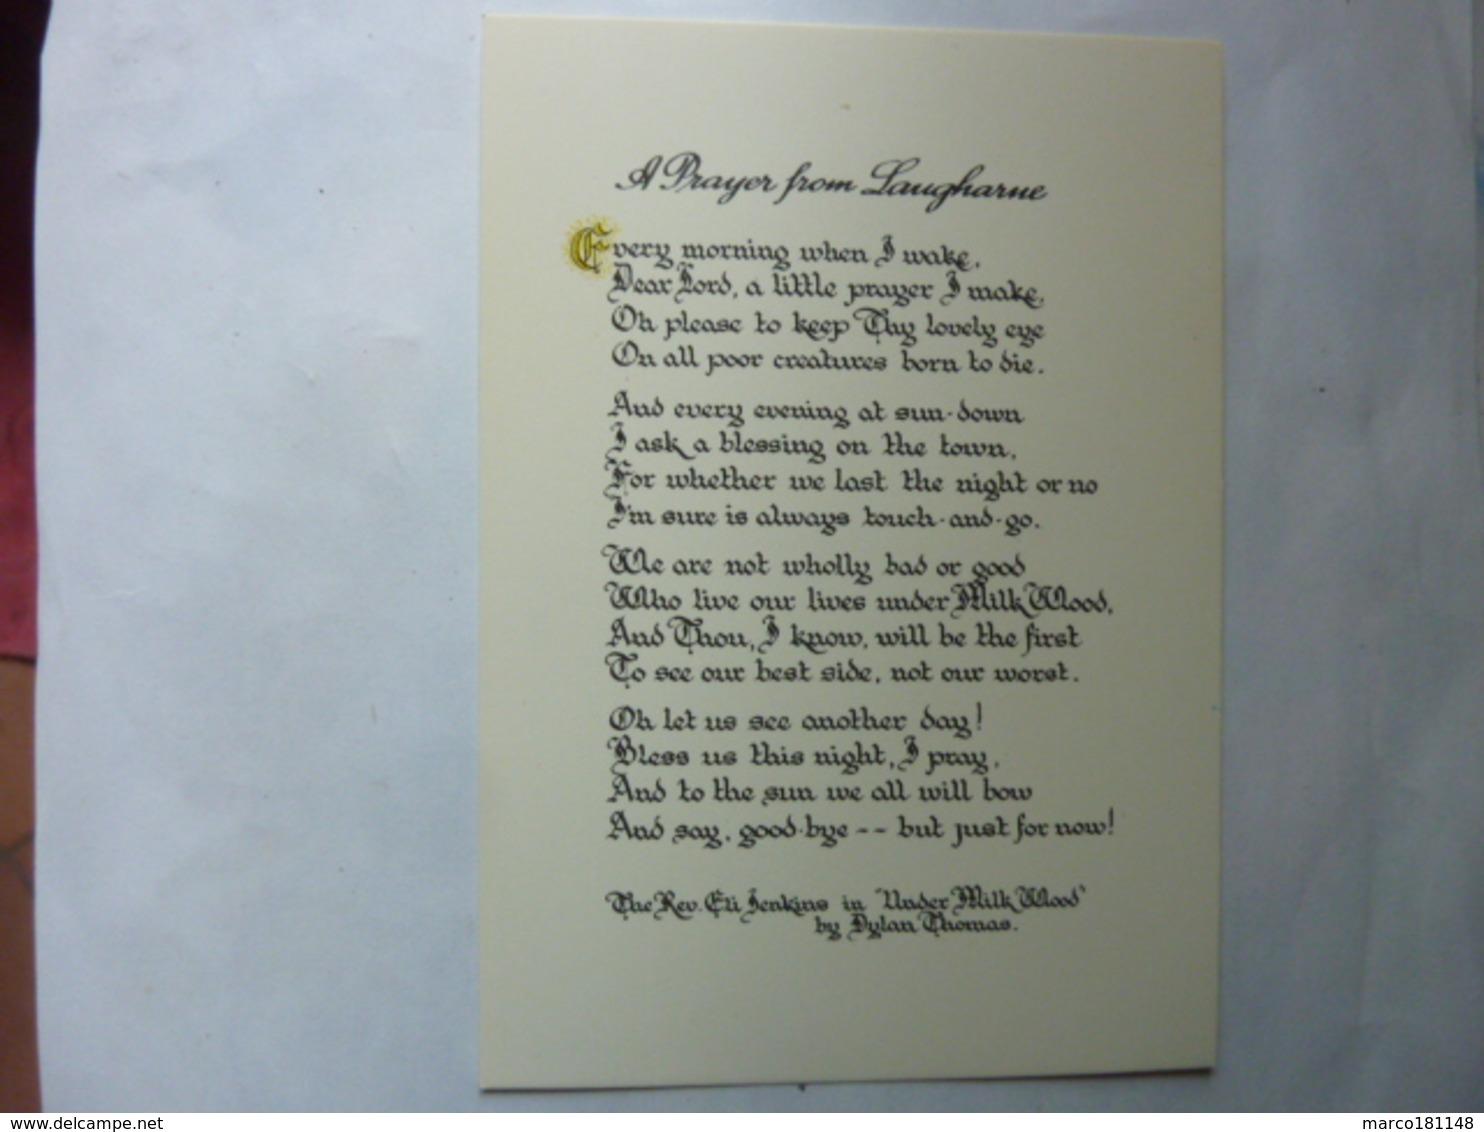 A Prayer from Laugharne
Every morning when I wake,
Dear Lord, a little prayer I make,
Oh please to keep Thy lovely eye
On all poor creatures born to die.
And every evening at sun-down
I ask a blessing on the town,
For whether we last the night or no
I'm sure is always touch-and-go.
We are not wholly bad or good
Who live our lives under Milk Wood,
And Thou, I know, will be the first
To see our best side, not our worst.
Oh let us see another day!
Bless us this night, I pray,
And to the sun we all will bow
And say, good-bye -- but just for now!
The Rev. Eli Jenkins in "Under Milk Wood"
by Dylan Thomas.
delcampe.net
marco181148